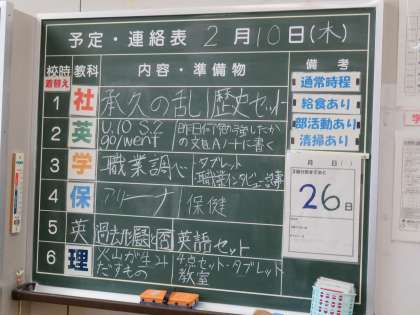 予定・連絡表 2月10日(木)
校時 教科 内容・準備物 備考
着替え
1 社 承久の乱 歴史セット
2 英 U.10 S.2
go/went 昨日何勉強したか
の文Aノートに書く
3 学 職業調べ タブレット
職業インタビュー
4 保 アリーナ 保健
5 英 過去形 英語セット
6 理 火山が生み
だすもの 4点セット・タブレット
教室
通常時程
給食あり
部活動あり
清掃あり
月 日( )
26日